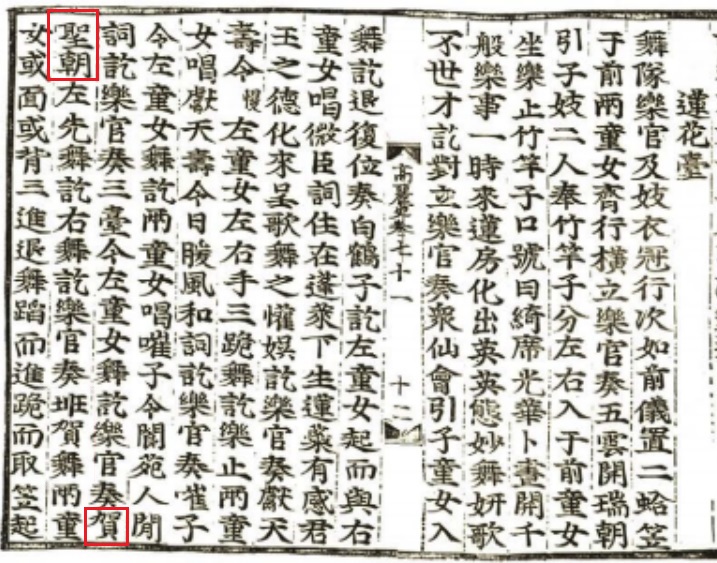 蓮花臺
舞隊樂官及妓衣冠行次如前儀置二蛤笠
于前兩童女齊行橫立樂官奏五雲開瑞朝
引子妓二人奉竹竿子分左右入于前童女
坐樂止竹竿子口號曰綺席光華卜晝開千
般樂事一時來蓮房化出英英態妙舞妍歌
不世才訖對立樂官奏衆仙會引子童女入
高麗史卷七十一 十二
舞訖退復位奏白鶴子訖左童女起而與右
童女唱微臣詞住在蓬萊下生蓮蘂有感君
王之德化來呈歌舞之懽娛訖樂官奏獻天
壽令慢左童女左右手三跪舞訖樂止兩童
女唱獻天壽令日暖風和詞訖樂官奏嗺子
令左童女舞訖兩童女唱嗺子令閬苑人閒
詞訖樂官奏三臺令左童女舞訖樂官奏賀
聖朝左先舞訖右舞訖樂官奏班賀舞兩童
女或面或背三進退舞蹈而進跪而取笠起